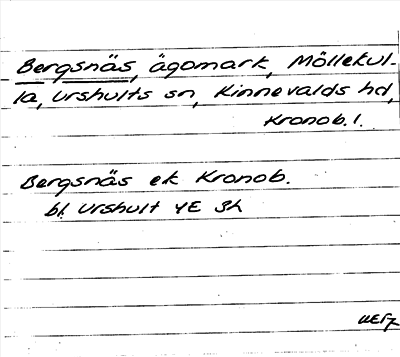 Bergsnäs, ägomark, Möllekul-
la, Urshults sn, Kinnevalds hd,
Kronob. l.
Bergsnäs ek Kronob.
bl. Urshult 4E 3h